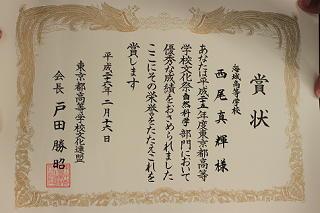 賞状
海城高等学校
西尾真輝様
あなたは平成二十五年度東京都高等
学校文化祭自然科学部門において
優秀な成績をおさめられました
ここにその栄誉をたたえこれを
賞します
平成二十六年二月十六日
東京都高等学校文化連盟
会長戸田勝昭